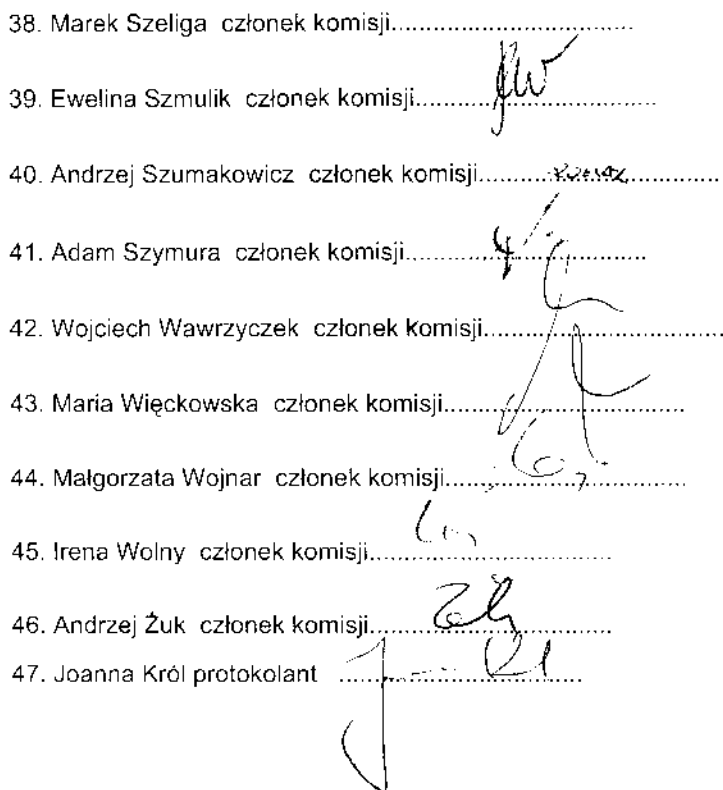 38. Marek Szeliga członek komisji...............................
39. Ewelina Szmulik członek komisji...............................
40. Andrzej Szumakowicz członek komisji...............................
41. Adam Szymura członek komisji...............................
42. Wojciech Wawrzyczek członek komisji...............................
43. Maria Więckowska członek komisji...............................
44. Małgorzata Wojnar członek komisji...............................
45. Irena Wolny członek komisji...............................
46. Andrzej Żuk członek komisji...............................
47. Joanna Król protokolant ...............................